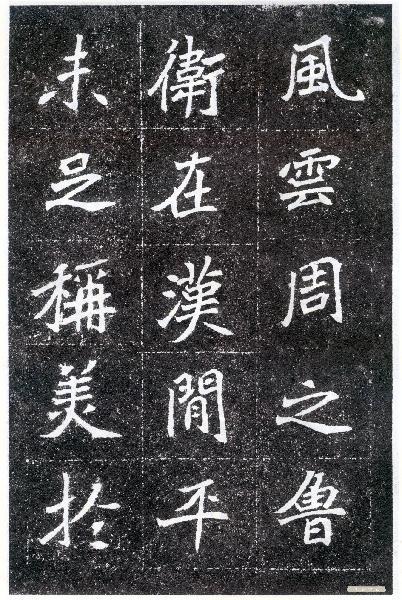 風雲周之魯
衛在漢閒平
未足稱美於